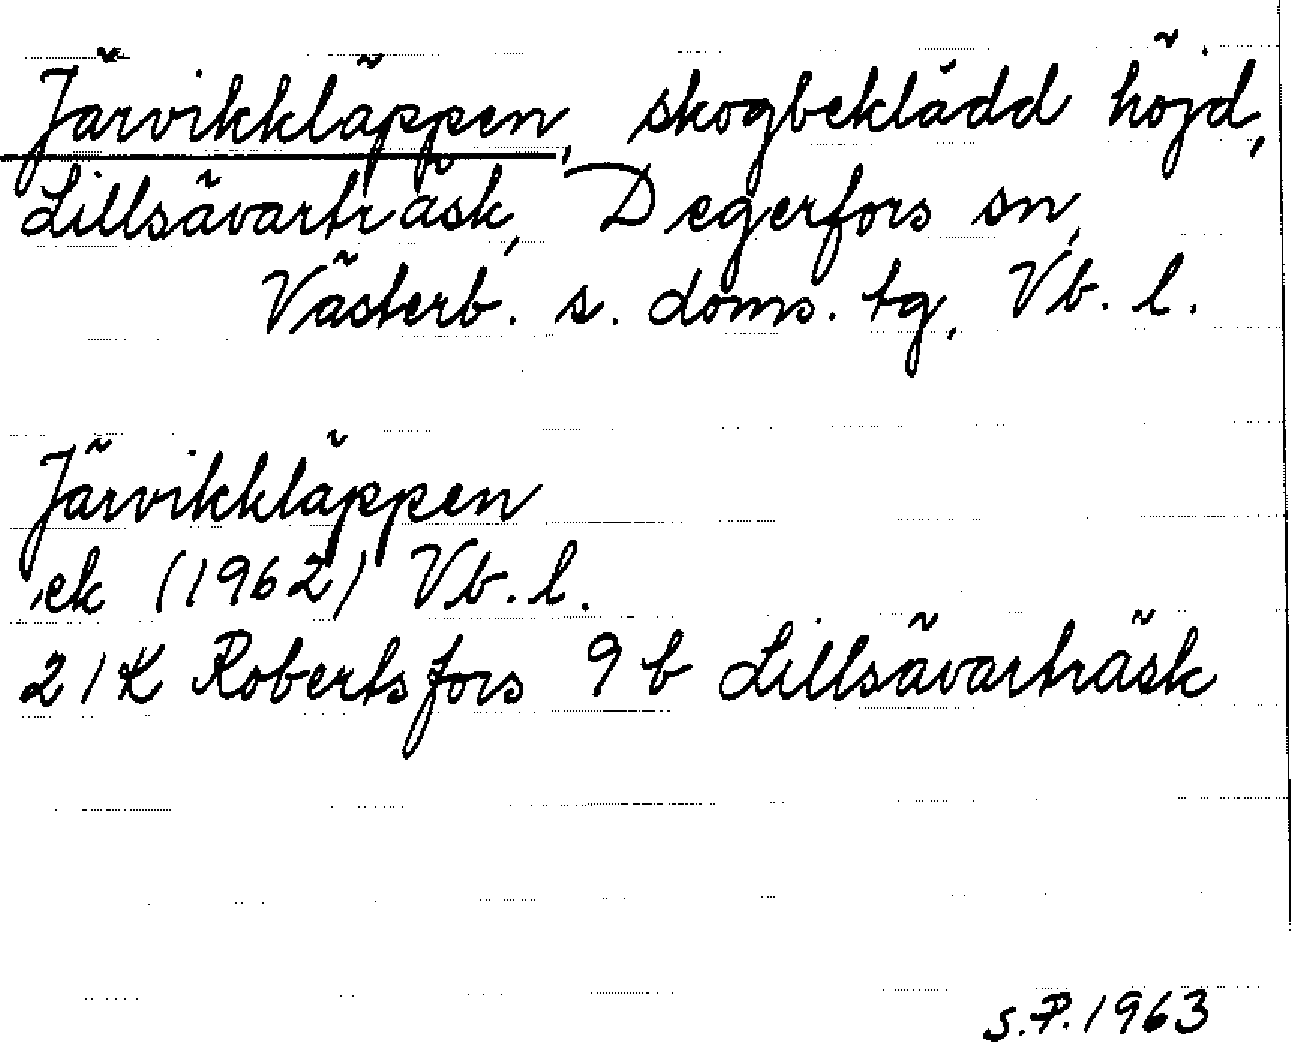 Järvikkläppen, skogbeklädd höjd,
Lillsävarträsk, Degerfors sn,
Västerb. s. doms. tg, Vb. l.
Järvikkläppen
ek (1962) Vb. l.
21K Robertsfors 9b Lillsävarträsk
S.P. 1963